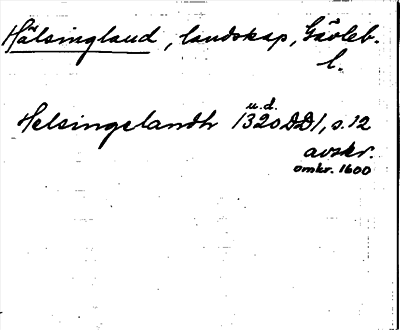 Hälsingland, landskap, Gävleb.
l.
u.d.
Helsingelandh 1320 DD1, s. 12
avskr.
omkr. 1600